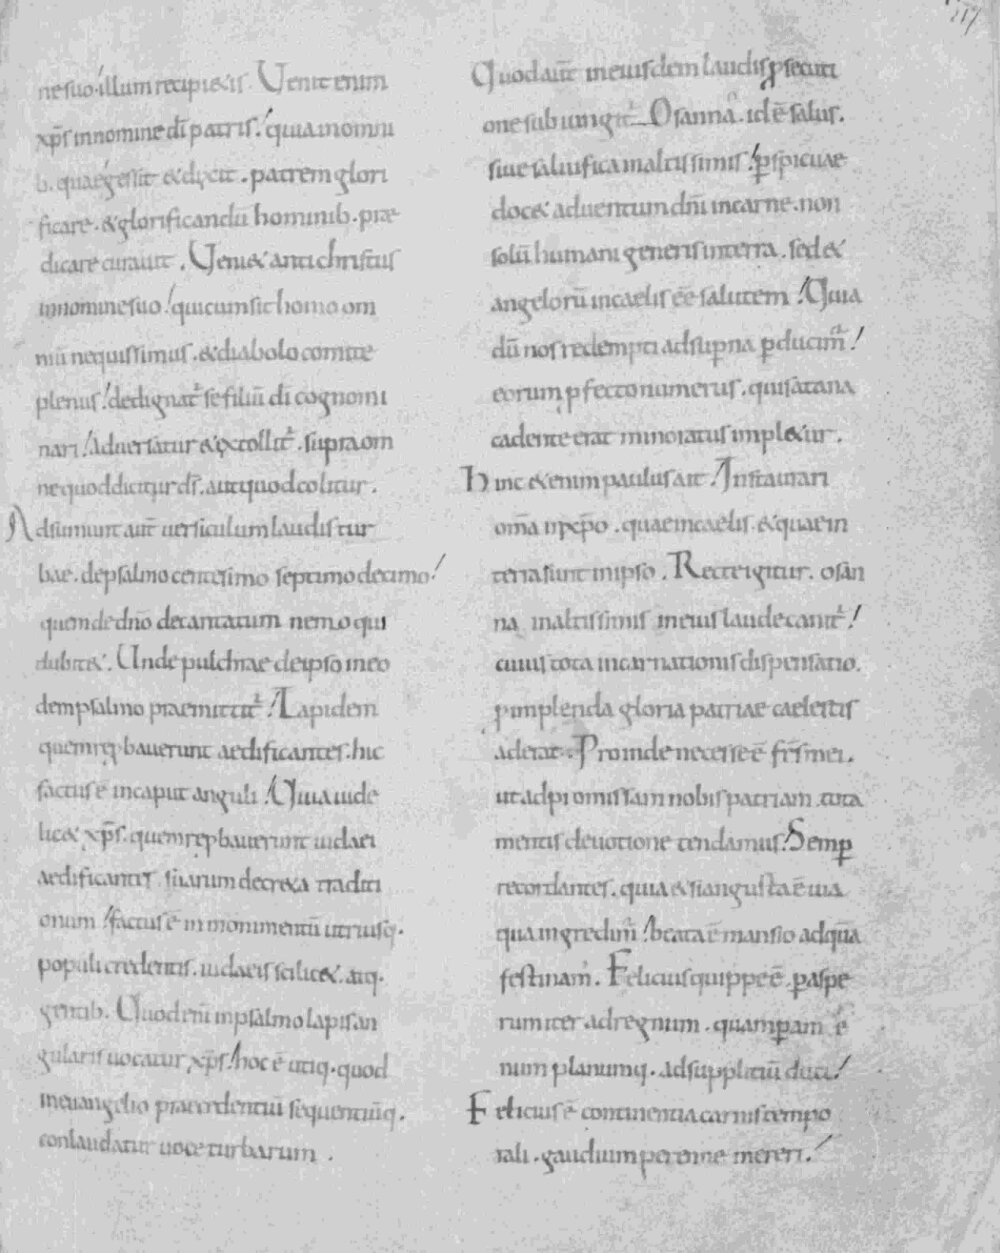 117
ne suo illum recipietis. Uenit enim
xp̄s in nomine dī patris. quia in omni
b. quae gessit & dixit. patrem glori
ficare. & glorificandū hominib. prae
dicare curauit. Ueni& antichristus
in nomine suo! qui cum sit homo om
niū nequissimus. & diabolo comite
plenus! dedignat̉ se filiū dī cognomi
nari! Aduersatur & extollit̉. supra om
ne quod dicitur ds̄. aut quod colitur.
Adsumunt aūt uersiculum laudis tur
bae. de psalmo centesimo septimo decimo!
quon de dn̄o decantatum nemo qui
dubit&. Unde pulchrae de ipso in eo
dem psalmo praemittit̉! Lapidem
quem reꝓbauerunt aedificantes. hic
factus ē in caput anguli! Quia uide
lic& xp̄s. quem reꝓbauerunt iudaei
aedificantes. suarum decreta traditi
onum! factus ē in monimentū utriusq.
populi credentis. iudaeis scilic&. atq.
gentib. Quod enī in psalmo lapis an
gularis uocatur xp̄s! hoc ē utiq. quod
in euangelio praecedentiū sequentiūq.
conlaudatur uoce turbarum.
Quod aūt in eiusdem laudis ꝓsecuti
one subiungit̉. Osanna. id ē salus.
siue saluifica in altissimis! ꝑspicuae
doc& aduentum dn̄i in carne. non
solū humani generis in terra. sed &
angelorū in caelis ēē salutem! Quia
dū nos redempti ad suꝑna ꝑducim̉!
eorum ꝓfecto numerus. qui satana
cadente erat minoratus impl&ur.
Hinc &enim paulus ait! Instaurari
om̄a in xp̄o. quae in caelis. & quae in
terra sunt in ipso. Recte igitur. osan
na in altissimis in eius laude canit̉!
cuius tota incarnationis dispensatio.
ꝓ implenda gloria patriae caelestis
aderat. Proinde necesse ē fr̄s mei.
ut ad promissam nobis patriam. tota
mentis deuotione tendamus! Semꝑ
recordantes. quia & si angusta ē uia
qua ingredim̉! beata ē mansio ad quā
festinam̉. Felicius quippe ē. ꝑ aspe
rum iter ad regnum. quam ꝑ am ē
num planumq. ad suppliciū duci!
Felicius ē continentia carnis tempo
rali. gaudium perenne mereri.